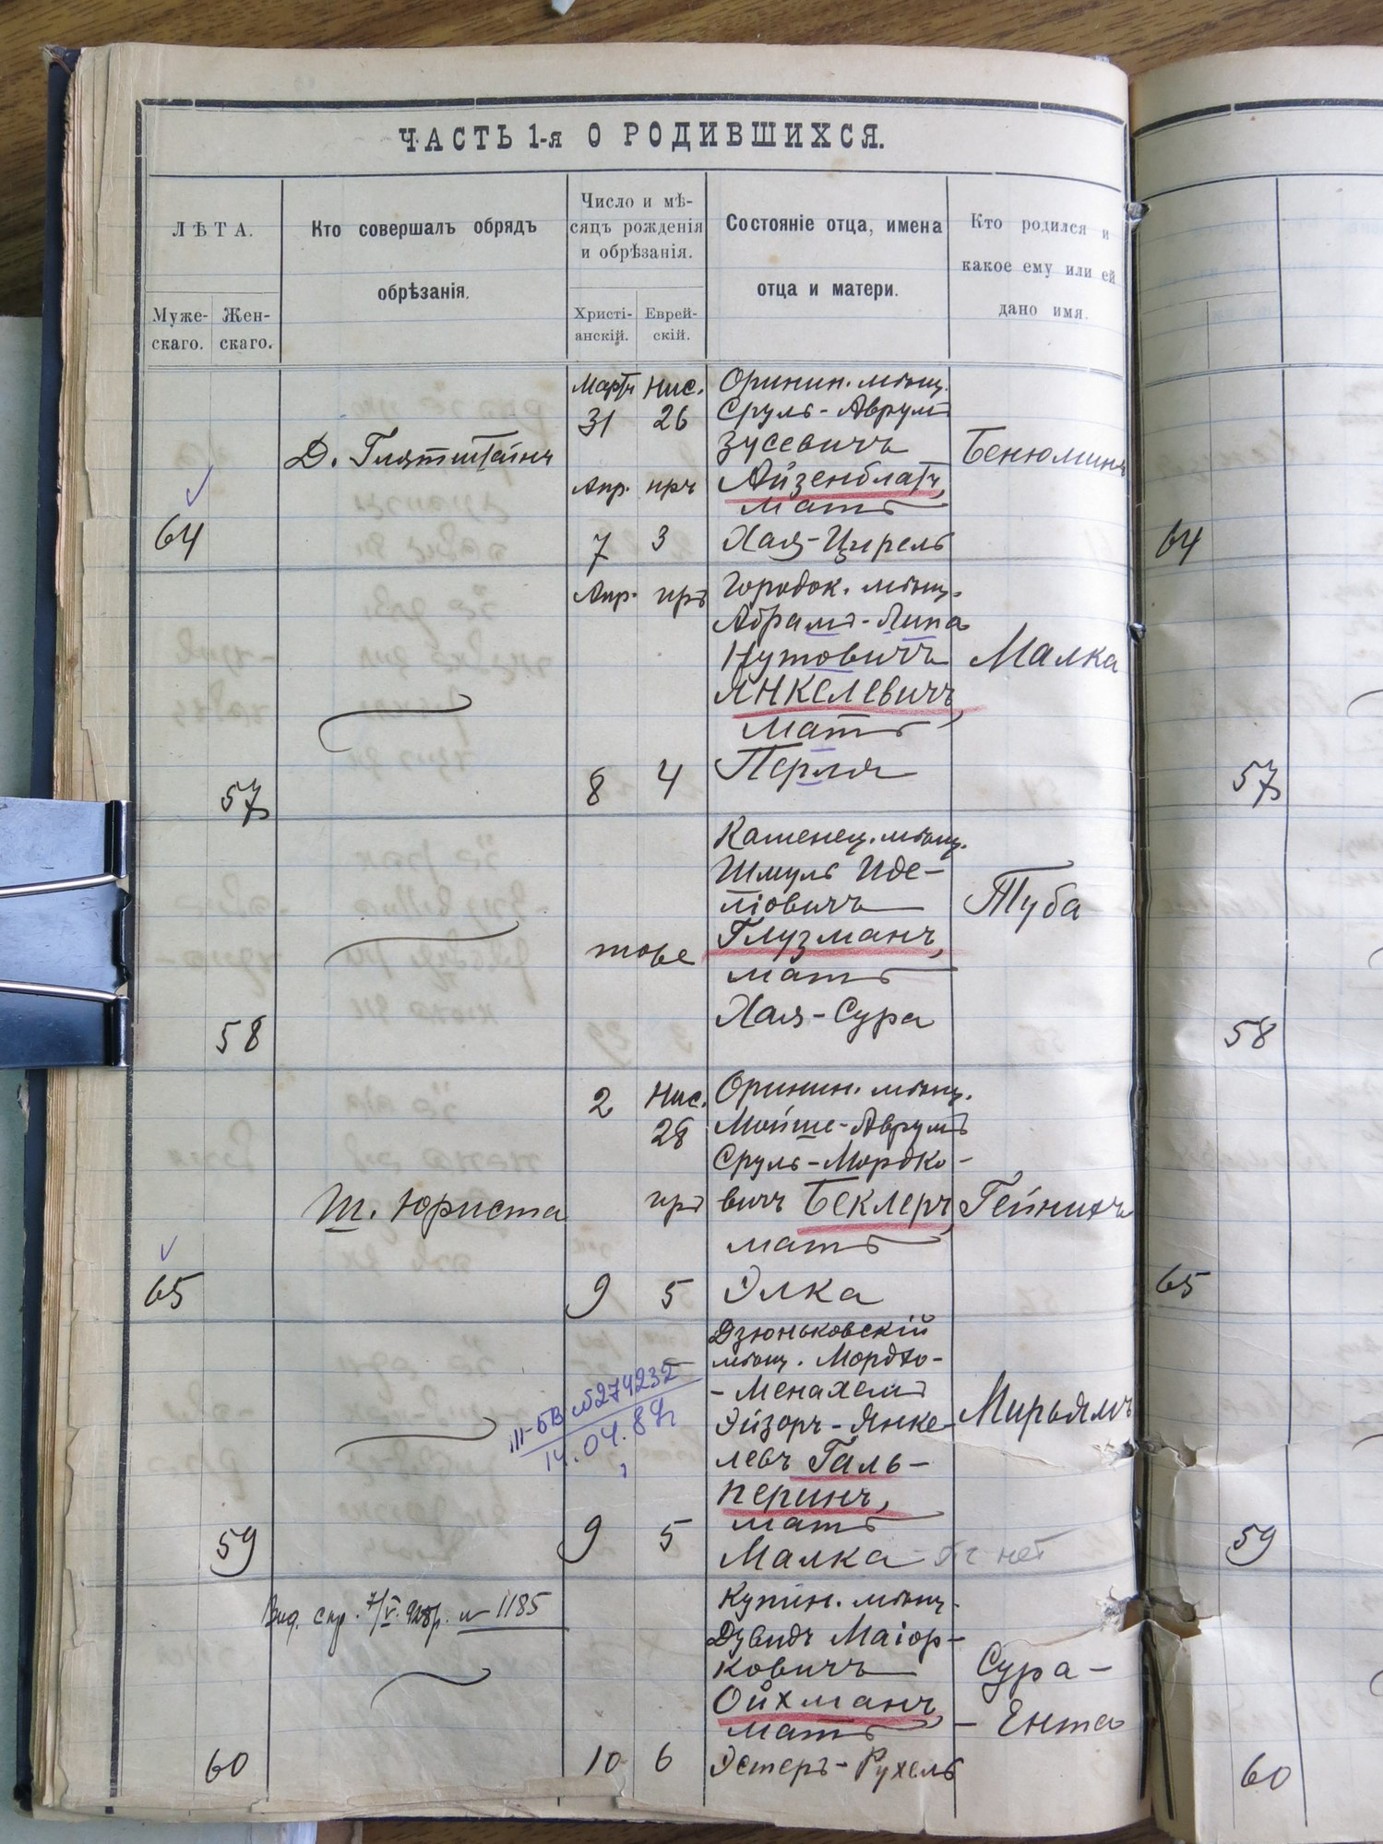 ЧАСТЬ 1-я О РОДИВШИХСЯ.
ЛѢТА.
Муже-
скаго.
Жен-
скаго.
Кто совершалъ обрядъ
обрѣзанія.
Число и мѣ-
сяцъ рожденія
и обрѣзанія.
Христі-
анскій.
Еврей-
скій.
Состояніе отца, имена
отца и матери.
Кто родился и
какое ему или ей
дано имя.
64
Д. Глятштейнъ
Мартъ Нис.
31 26
Апр. іяръ
7 3
Оринин. мѣщ.
Сруль-Аврумъ
Зусевичъ
Айзенблатъ,
мать
Хая-Цирель
Бенюминъ
64
57
Апр. іяръ
8 4
Городок. мѣщ.
Абрамъ-Липа
Нутовичъ
Янкелевичъ,
мать
Перля
Малка
57
58
тоже
Каменец. мѣщ.
Шмуль Иде-
ліовичъ
Глузманъ,
мать
Хая-Сура
Туба
58
65
Ш. Юриста
2 Нис.
28
іяръ
9 5
Оринин. мѣщ.
Мойше-Аврумъ
Сруль-Мордко-
вичъ Беклеръ,
мать
Элка
Гейнихъ
65
59
III-БВ №274232
14.04.87г
9 5
Дзюньковскій
мѣщ. Мордхо-
-Менахемъ
Эйзоръ-Янке-
левъ Галь-
перинъ,
мать
Малка - нет
Мирьямъ
59
60
Выд. спр. 7/V. 928р. № 1185
10 6
Купин. мѣщ.
Дувидъ Маіор-
ковичъ
Ойхманъ,
мать
Эстеръ-Рухель
Сура-
-Ента
60